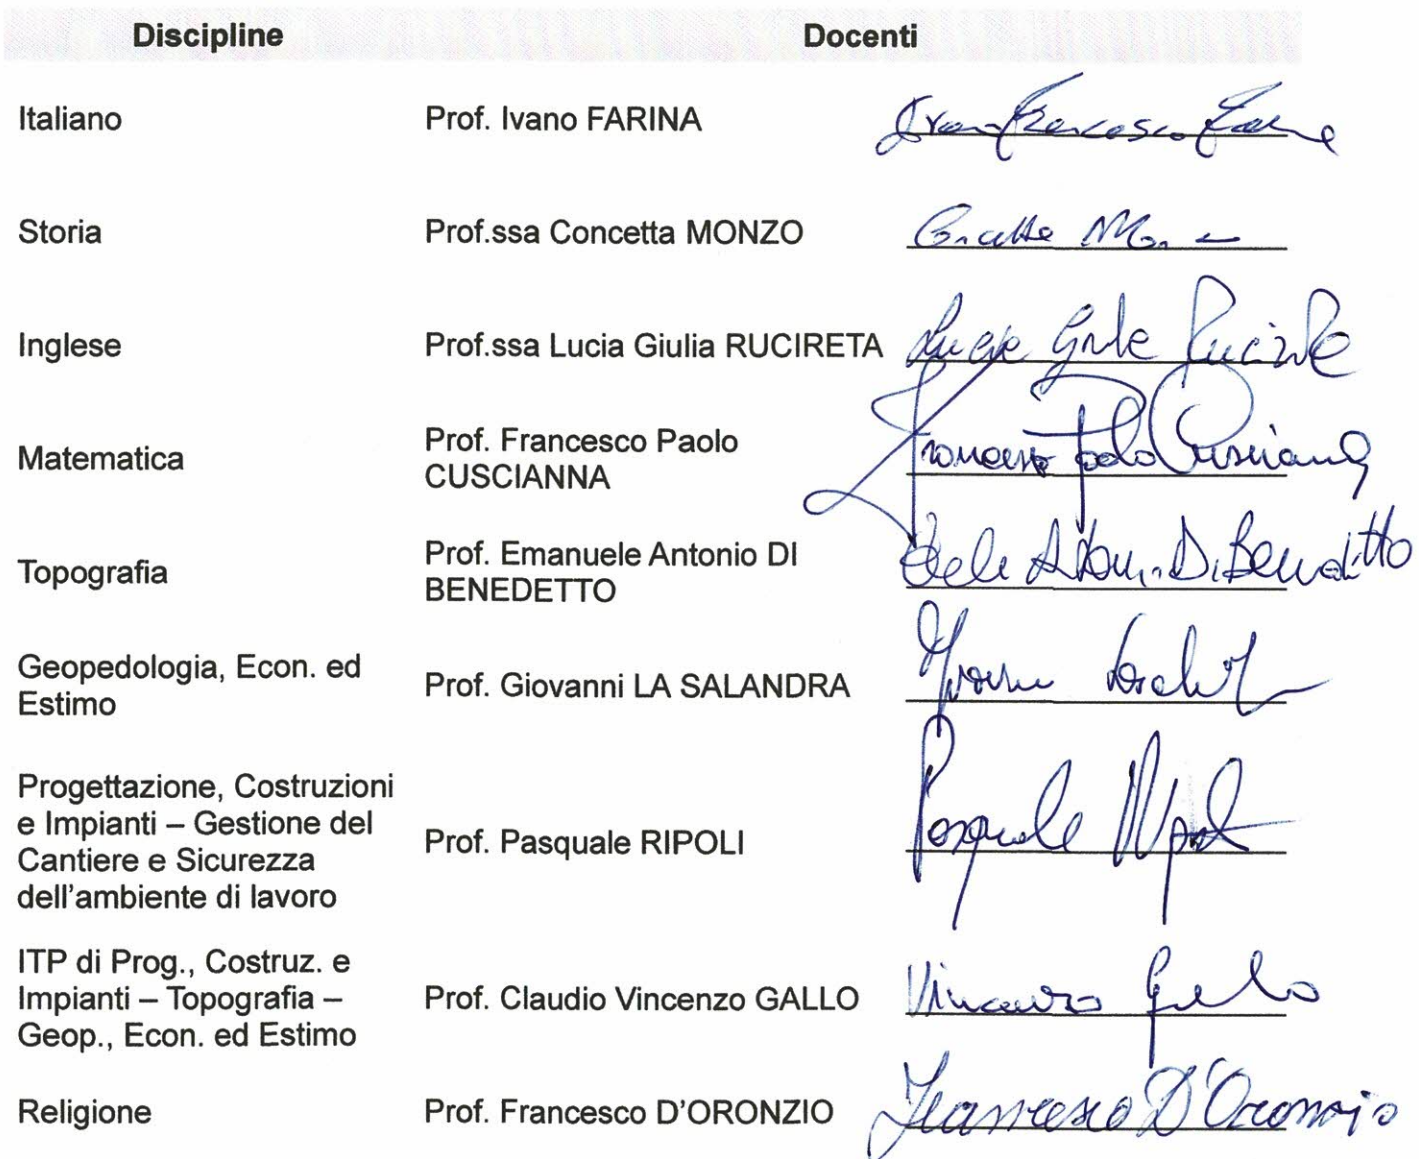 Discipline Docenti
Italiano Prof. Ivano FARINA Ivan Francesco Farina
Storia Prof.ssa Concetta MONZO Concetta Mon
Inglese Prof.ssa Lucia Giulia RUCIRETA Lucia Giulia Rucireta
Matematica Prof. Francesco Paolo
CUSCIANNA Francesco Paolo Cuscianna
Topografia Prof. Emanuele Antonio DI
BENEDETTO Di Benedetto
Geopedologia, Econ. ed
Estimo Prof. Giovanni LA SALANDRA
Progettazione, Costruzioni
e Impianti – Gestione del
Cantiere e Sicurezza
dell'ambiente di lavoro Prof. Pasquale RIPOLI Pasquale Ripoli
ITP di Prog., Costruz. e
Impianti – Topografia –
Geop., Econ. ed Estimo Prof. Claudio Vincenzo GALLO Vincenzo Gallo
Religione Prof. Francesco D'ORONZIO Francesco D'Oronzio